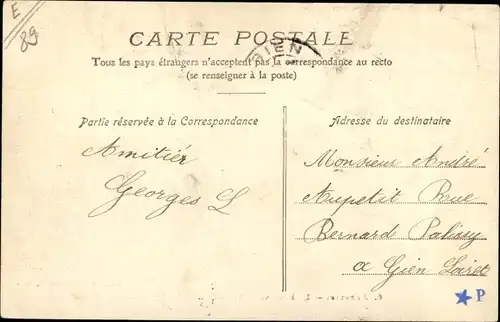 E
89
CARTE POSTALE
GIEN
Tous les pays étrangers n'acceptent pas la correspondance au recto
(se renseigner à la poste)
Partie réservée à la Correspondance
Adresse du destinataire
Amitiés
Georges L
Monsieur André
Aupetit Rue
Bernard Palissy
a Gien Loiret
P